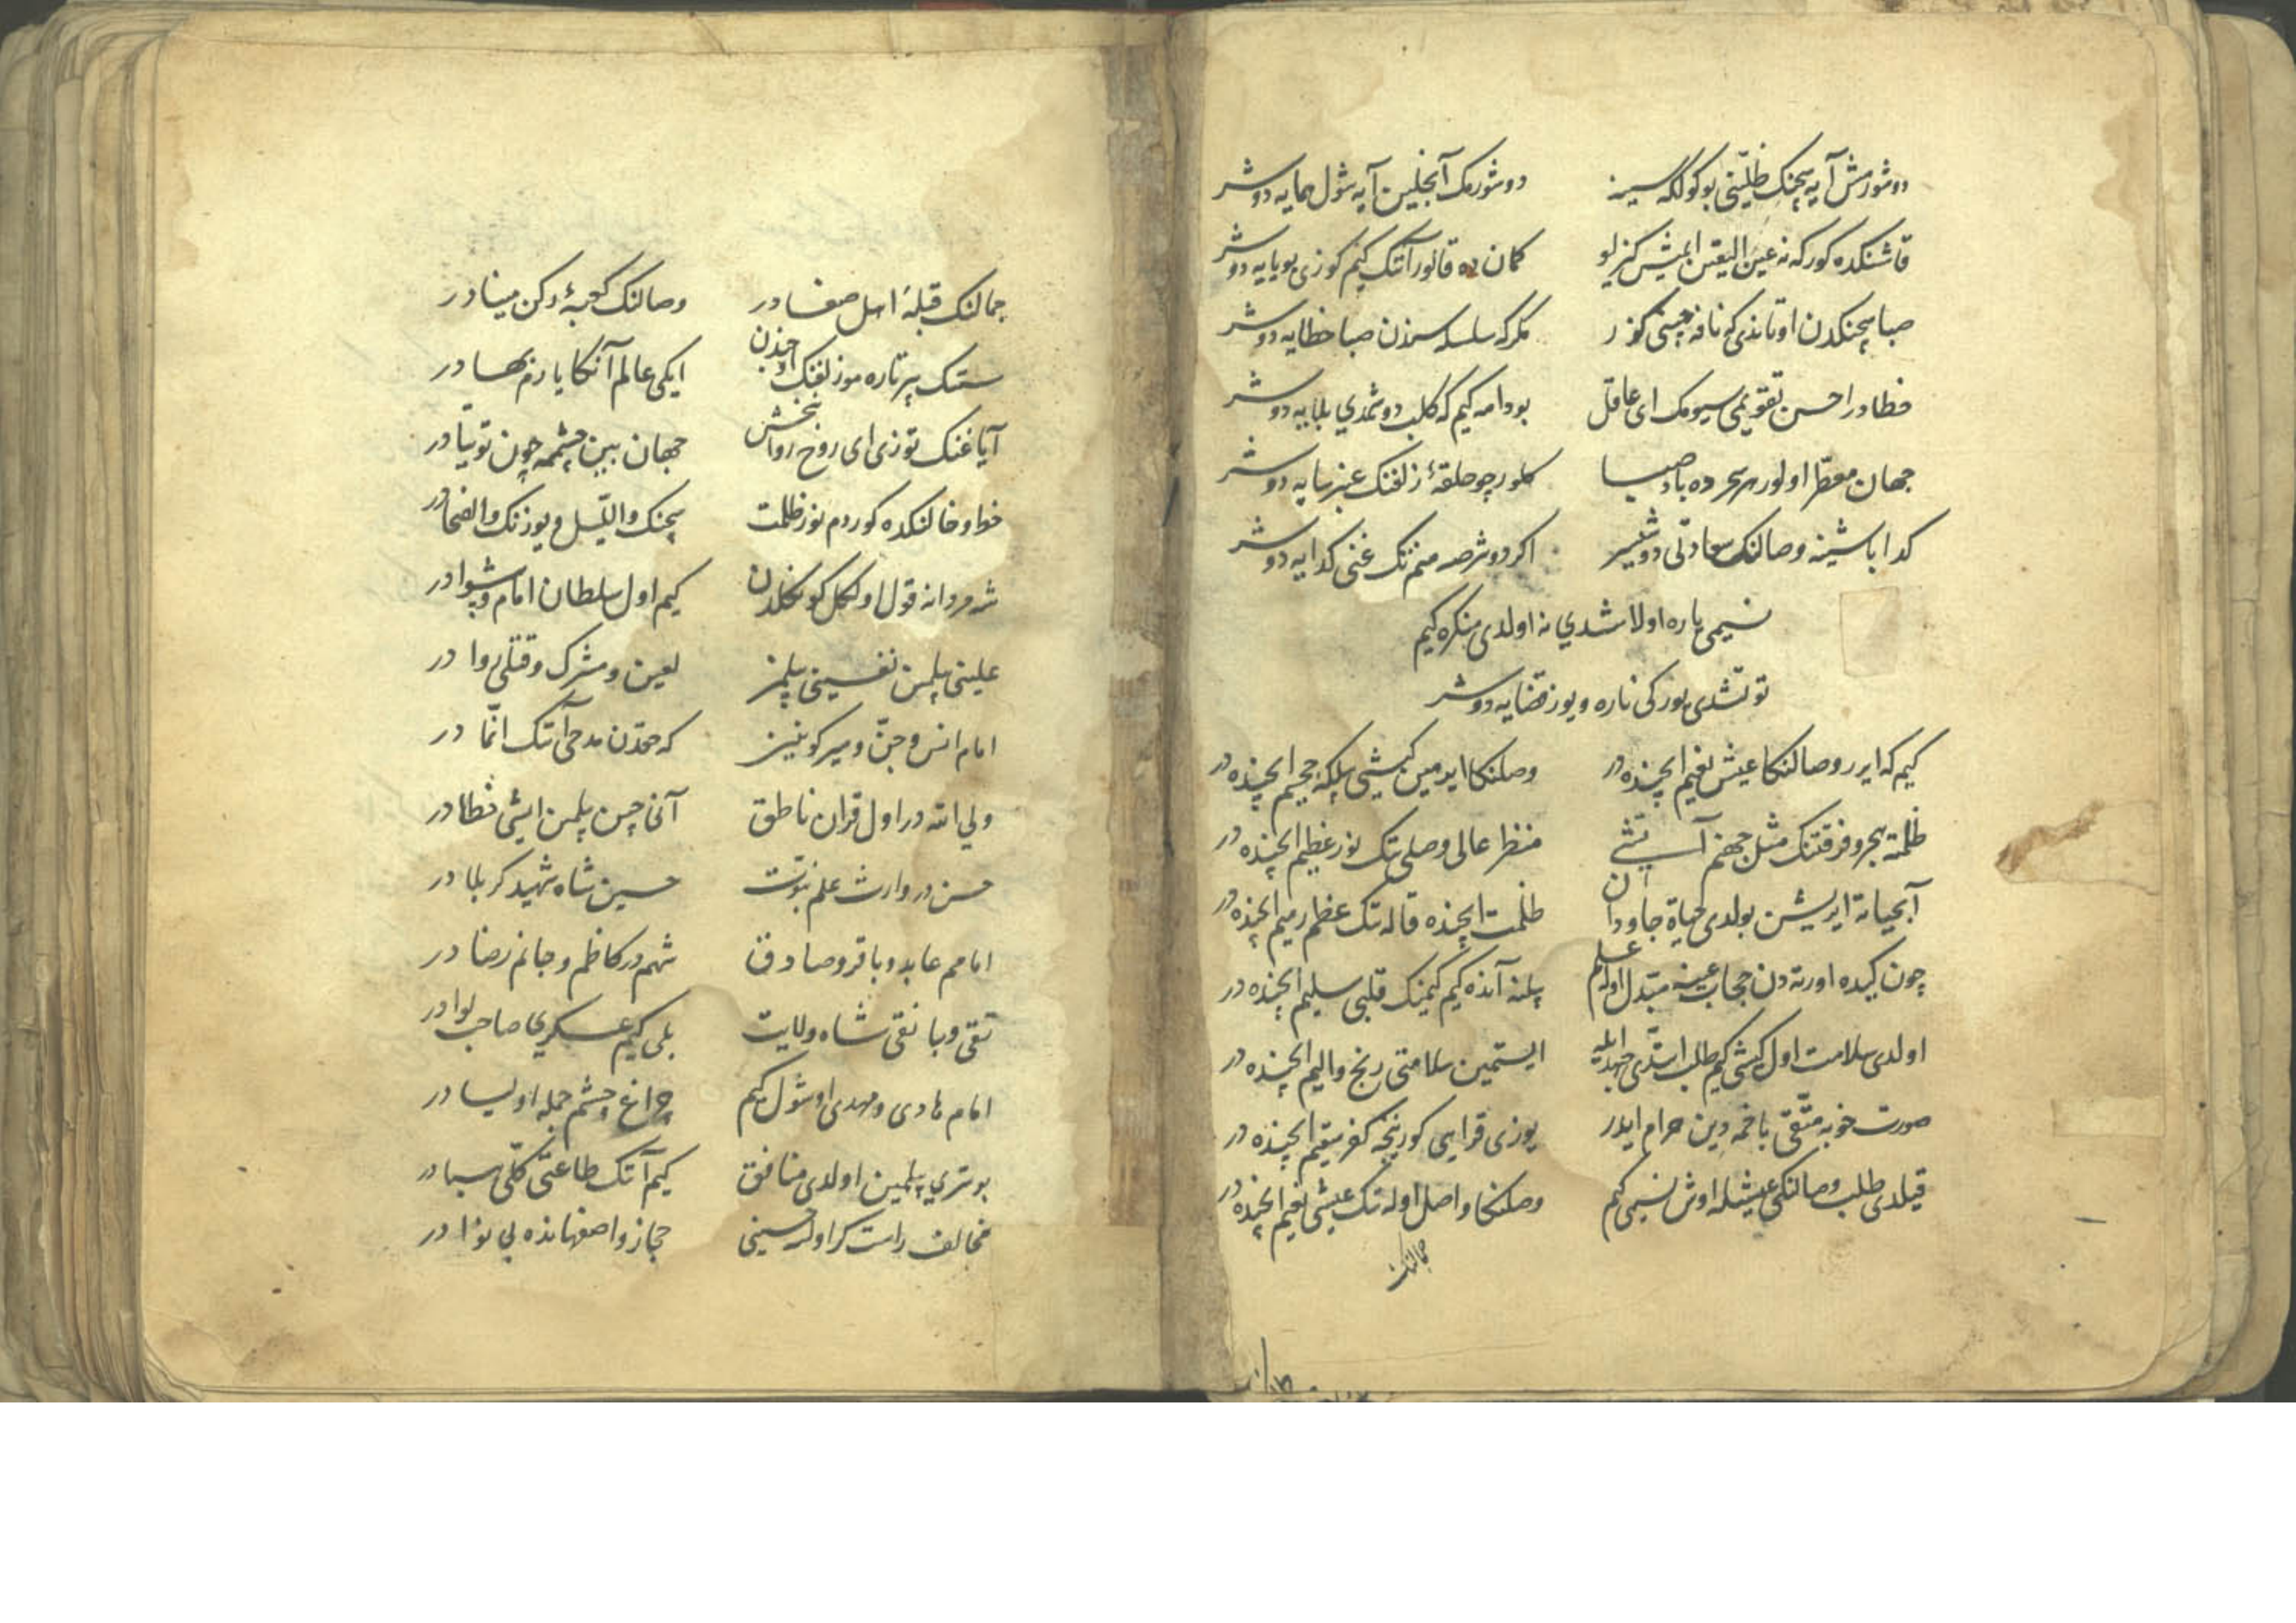 دوشورمش آیه سچنک ظلّینی بو کولکه سیز دوشورمک آنجلین آیه شول همایه دوشر
قاشنکده کورکه نه عین الیقین ایمیش کزلو کمان ده قانور آنک کیم کوزی یویایه دوشر
صبا سچنکدن اوتاندی که نافهٔ چینی کوز ر مکرکه سلسله سندن صبا خطایه دوشر
خطادر احسن تقویمی سیومک ای عاقل بودامه کیم که کلب دوشمدی بلایه دوشر
جهان معطّر اولور هر سحرده باد صبا کلور چو حلقهٔ زلفنک عنبر سایه دوشر
کدا باشینه وصالنک سعادتی دوشیسر اکر دوشرصه منم تک غنی کدایه دوشر
نسیمی یاره اولاشدی نه اولدی منکره کیم
توتشدی یورکی ناره و یوز قضایه دوشر
کیم که ایرر وصالنکا عیش نعیم ایچنده در وصلنکا ایرمین کیشی بیلکه جحیم ایچنده در
ظلمت هجر و فرقتنک مثل جهنم آتشی منظر عالی وصلی تک نور عظیم ایچنده در
آبحیاته ایریشن بولدی حیاة جاودان ظلمت ایچنده قاله تک عظم رمیم ایچنده در
چون کیده اورته دن حجاب عینه مبتدل اولا علم بیلنه آنده کیم کیمنک قلبی سلیم ایچنده در
اولدی سلامت اول کیشی کیم طلب ایتدی جهد ایله ایستمین سلامتی رنج و الیم ایچنده در
صورت خوبه متّقی باخمه دین حرام ایدر یوزی قرایی کورنجه کفر سقیم ایچنده در
قیلدی طلب وصالنکی عیشله اوش نسیمی کیم وصلنکا واصل اوله تک عیشی نعیم ایچنده در
جمالنک
جمالنک قبلهٔ اهل صفادر وصالنک کعبهٔ رکن منادر
سنک بیر تاره موز لفنک اوجندن ایکی عالم آنکا یارم بهادر
آیاغنک توزی ای روح روانبخش جهان بین چشمه چون توتیادر
خط و خالنکده کوردم نور ظلمت سچنک واللّیل و یوزنک والضحادر
شه مردانه قول اولکل کونکلدن کیم اول سلطان امام و پیشوادر
علینی بیلمین نفسینی بیلمز لعین و مشرک و قتلی روا در
امام انس و جنّ و میر کونین که حقدن مدحی آنک انّما در
ولی الله در اول قران ناطق آنی چین بیلمین ایشی خطادر
حسن در وارث علم نبوّت حسین شاه شهید کربلا در
امامم عابد و باقر و صادق شهم در کاظم و جانم رضا در
تقی و با نقی شاه ولایت بلی کیم عسکری صاحب لوا در
امام هادی و مهدی اوشول کیم چراغ و چشم جمله اولیا در
بو سرّی بیلمین اولدی منافق کیم آنک طاعتی کلّی هبادر
مخالف راست کر اولسه حسینی حجاز و اصفهانده بی نوا در